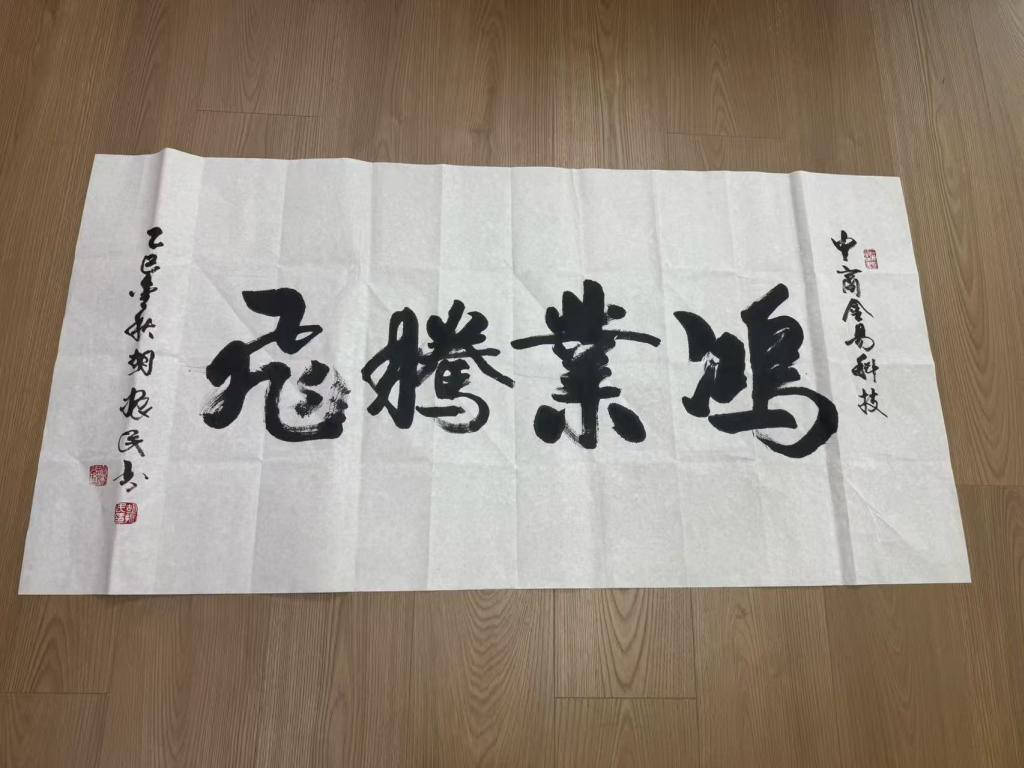 中商金易科技
鴻業騰飛
乙巳金秋胡振民书